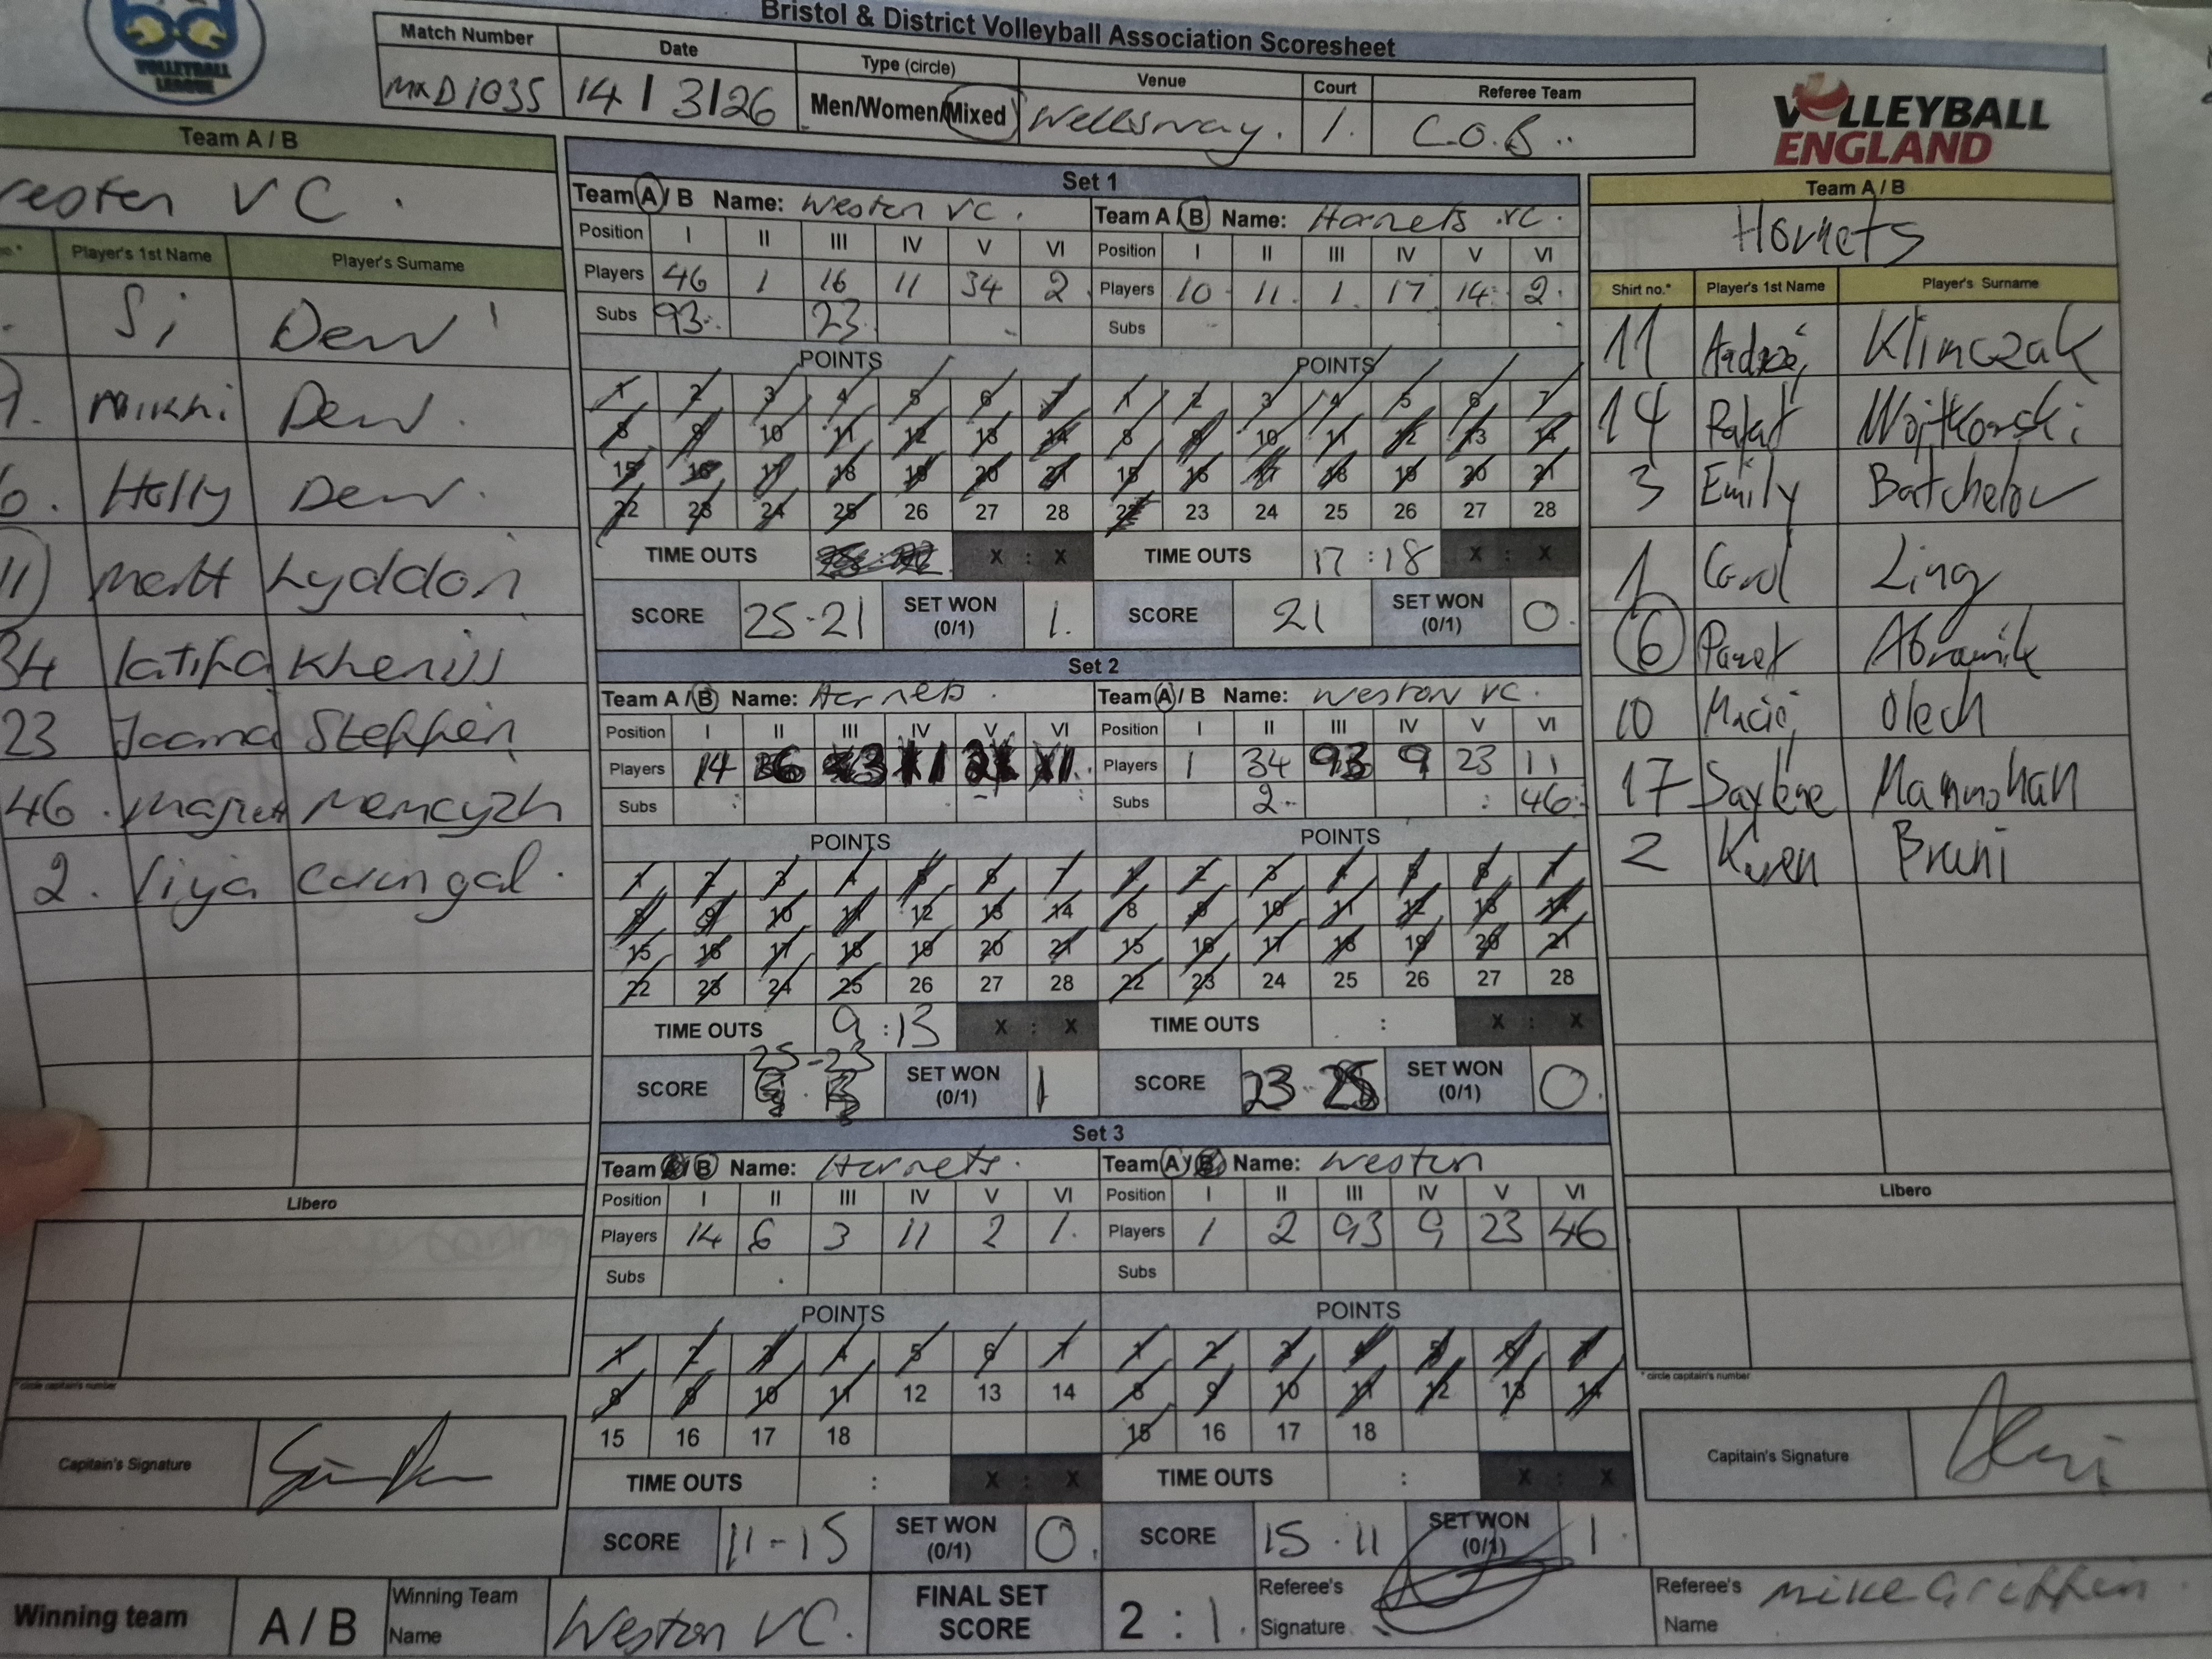 Bristol & District Volleyball Association Scoresheet
VOLLEYBALL
LEAGUE
Match Number
Date
Type (circle)
Venue
Court
Referee Team
MXD1035
14 / 3/26
Men/Women/Mixed
Wellsway.
1.
C.O.B..
VOLLEYBALL
ENGLAND
Team A / B
VC.
Player's 1st Name
Player's Surname
Si Dew
Nikki Dew.
Holly Dew.
11 Matt Lyddon
34 Latifa
23 Joanna Steffen
46.
2.
Libero
* circle captain's number
Capitain's Signature
Set 1
Team A / B Name: Weston VC.
Position I II III IV V VI
Players 46 1 16 11 34 2
Subs 93. 23
POINTS
1 2 3 4 5 6 7
8 9 10 11 12 13 14
15 16 17 18 19 20 21
22 23 24 25 26 27 28
TIME OUTS X : X
SCORE 25-21 SET WON (0/1) 1.
Team A / B Name: Hornets VC.
Position I II III IV V VI
Players 10 11. 1. 17 14 2.
Subs
POINTS
1 2 3 4 5 6 7
8 9 10 11 12 13 14
15 16 17 18 19 20 21
22 23 24 25 26 27 28
TIME OUTS 17 : 18 X : X
SCORE 21 SET WON (0/1) 0.
Set 2
Team A / B Name: Hornets.
Position I II III IV V VI
Players 14
Subs
POINTS
1 2 3 4 5 6 7
8 9 10 11 12 13 14
15 16 17 18 19 20 21
22 23 24 25 26 27 28
TIME OUTS 9 : 13 X : X
25-23
SCORE SET WON (0/1) 1
Team A / B Name: Weston VC.
Position I II III IV V VI
Players 1 34 93 9 23 11
Subs 2. 46
POINTS
1 2 3 4 5 6 7
8 9 10 11 12 13 14
15 16 17 18 19 20 21
22 23 24 25 26 27 28
TIME OUTS : X : X
SCORE 23-25 SET WON (0/1) 0.
Set 3
Team A / B Name: Hornets.
Position I II III IV V VI
Players 14 6 3 11 2 1.
Subs
POINTS
1 2 3 4 5 6 7
8 9 10 11 12 13 14
15 16 17 18
TIME OUTS : X : X
SCORE 11-15 SET WON (0/1) 0.
Team A / B Name: Weston
Position I II III IV V VI
Players 1 2 93 9 23 46
Subs
POINTS
1 2 3 4 5 6 7
8 9 10 11 12 13 14
15 16 17 18
TIME OUTS : X : X
SCORE 15-11 SET WON (0/1) 1.
Team A / B
Hornets
Shirt no.*
Player's 1st Name
Player's Surname
11 Klimczak
14 Rafał Wojtkowski
3 Emily Batchelor
1 Carol Ling
6
10 Olech
17
2 Karen
Libero
* circle captain's number
Capitain's Signature
Winning team
A / B
Winning Team Name
Weston VC.
FINAL SET SCORE
2 : 1.
Referee's Signature
Referee's Name
Mike Griffen